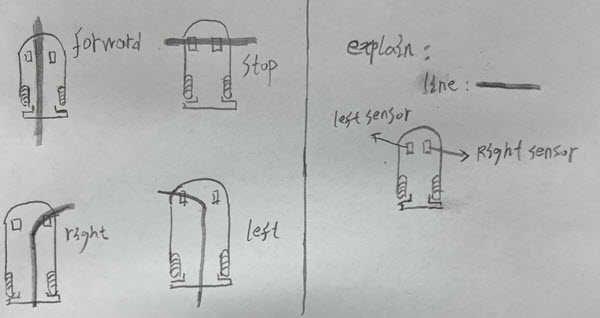 forward
stop
right
left
explain:
line:
left sensor
Right sensor